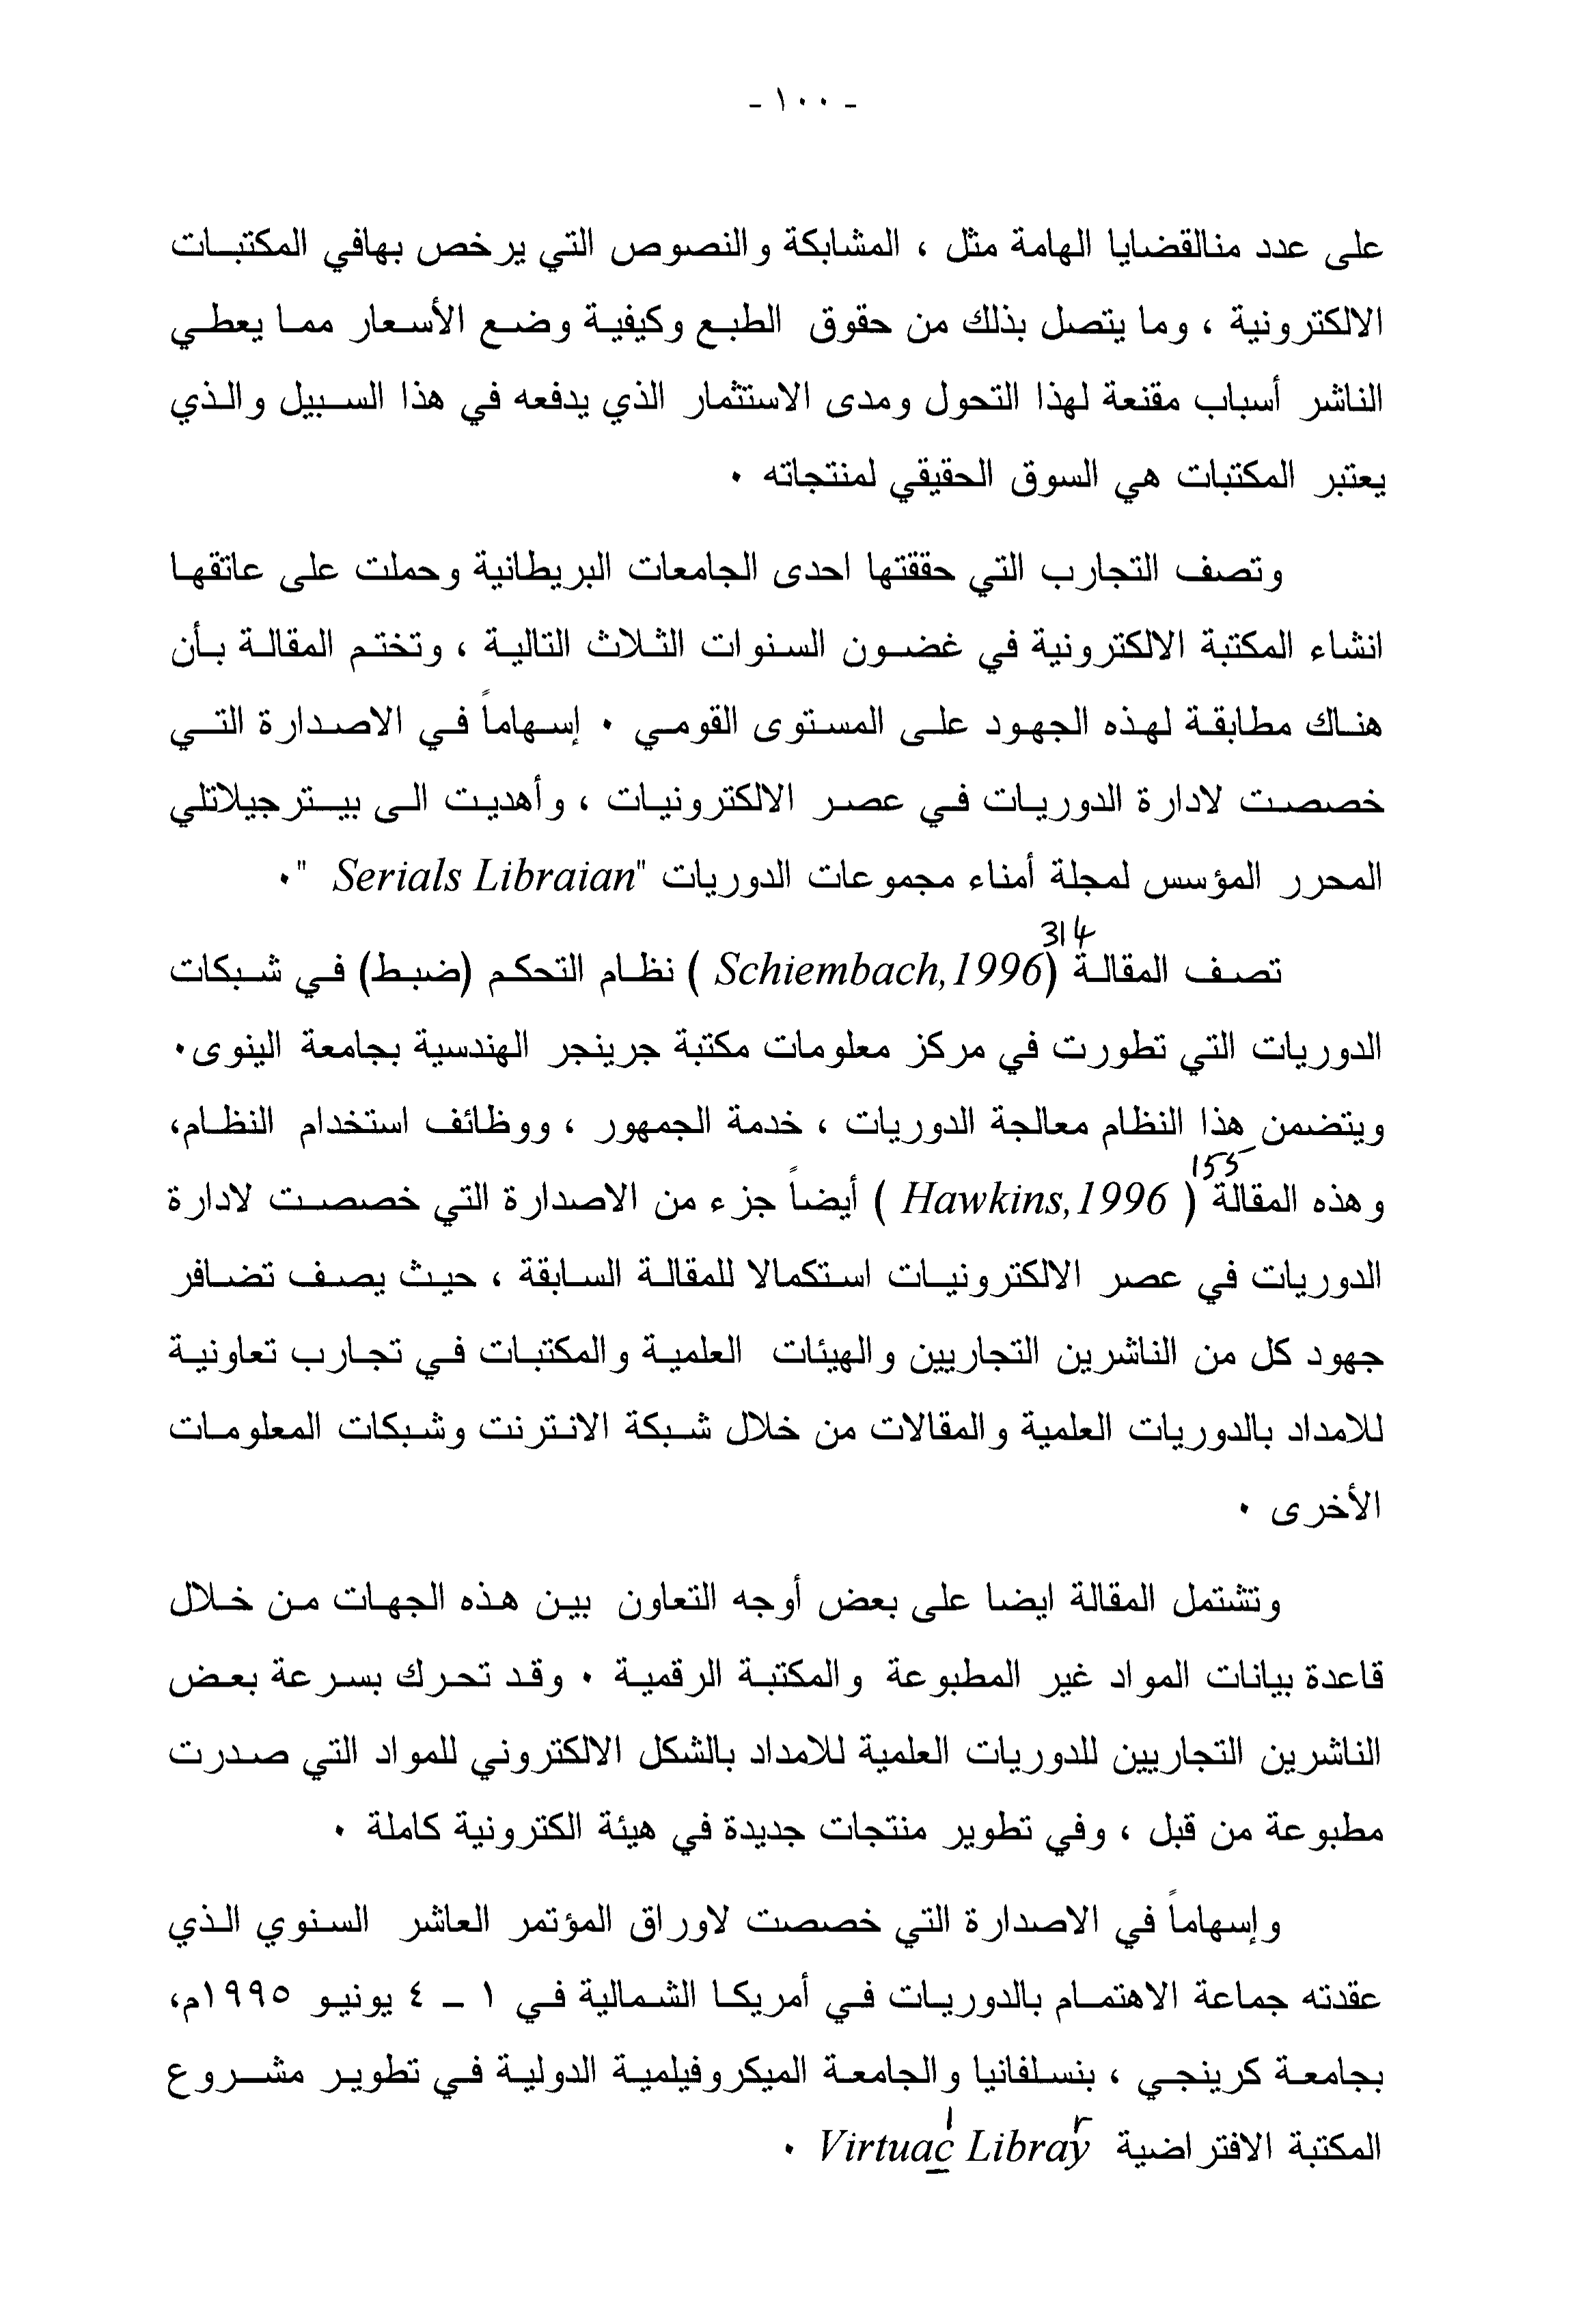 - ١٠٠ -
على عدد منالقضايا الهامة مثل ، المشابكة والنصوص التي يرخص بهافي المكتبات
الالكترونية ، وما يتصل بذلك من حقوق الطبع وكيفية وضع الأسعار مما يعطي
الناشر أسباب مقنعة لهذا التحول ومدى الاستثمار الذي يدفعه في هذا السبيل والذي
يعتبر المكتبات هي السوق الحقيقي لمنتجاته ٠
وتصف التجارب التي حققتها احدى الجامعات البريطانية وحملت على عاتقها
انشاء المكتبة الالكترونية في غضون السنوات الثلاث التالية ، وتختم المقالة بأن
هناك مطابقة لهذه الجهود على المستوى القومي ٠ إسهاماً في الاصدارة التي
خصصت لادارة الدوريات في عصر الالكترونيات ، وأهديت الى بيترجيلاتلي
المحرر المؤسس لمجلة أمناء مجموعات الدوريات "Serials Libraian "٠
314
تصف المقالة (Schiembach,1996 ) نظام التحكم (ضبط) في شبكات
الدوريات التي تطورت في مركز معلومات مكتبة جرينجر الهندسية بجامعة الينوى٠
ويتضمن هذا النظام معالجة الدوريات ، خدمة الجمهور ، ووظائف استخدام النظام،
155
وهذه المقالة ( Hawkins,1996 ) أيضاً جزء من الاصدارة التي خصصت لادارة
الدوريات في عصر الالكترونيات استكمالا للمقالة السابقة ، حيث يصف تضافر
جهود كل من الناشرين التجاريين والهيئات العلمية والمكتبات في تجارب تعاونية
للامداد بالدوريات العلمية والمقالات من خلال شبكة الانترنت وشبكات المعلومات
الأخرى ٠
وتشتمل المقالة ايضا على بعض أوجه التعاون بين هذه الجهات من خلال
قاعدة بيانات المواد غير المطبوعة والمكتبة الرقمية ٠ وقد تحرك بسرعة بعض
الناشرين التجاريين للدوريات العلمية للامداد بالشكل الالكتروني للمواد التي صدرت
مطبوعة من قبل ، وفي تطوير منتجات جديدة في هيئة الكترونية كاملة ٠
وإسهاماً في الاصدارة التي خصصت لاوراق المؤتمر العاشر السنوي الذي
عقدته جماعة الاهتمام بالدوريات في أمريكا الشمالية في ١ - ٤ يونيو ١٩٩٥م،
بجامعة كرينجي ، بنسلفانيا والجامعة الميكروفيلمية الدولية في تطوير مشروع
l r
المكتبة الافتراضية Virtuac Libray ٠